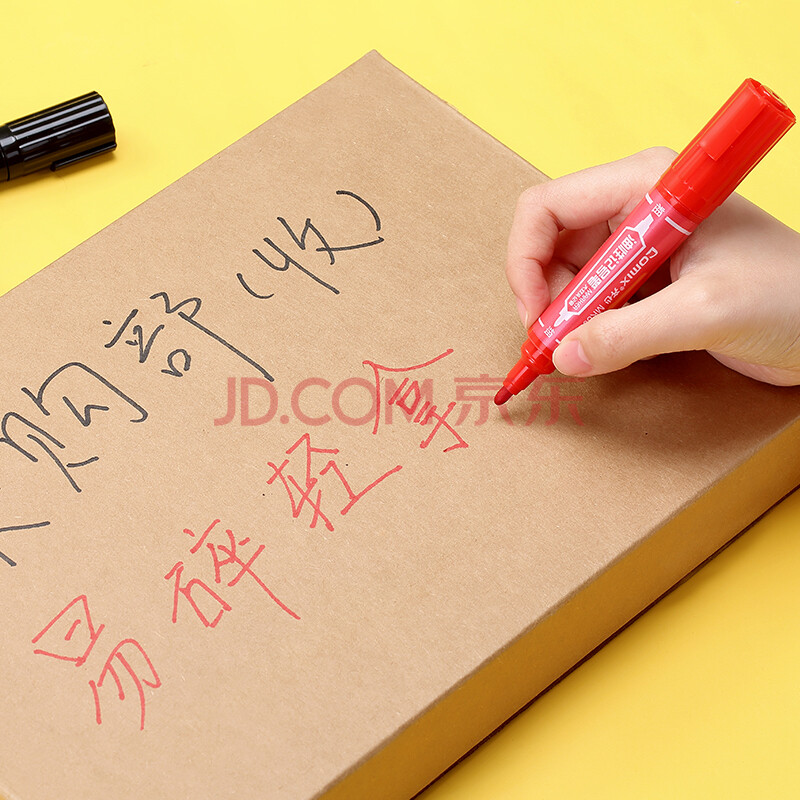 购部(收)
易碎轻拿
JD.COM 京东
Comix 齐心
油性记号笔
MARKER
粗